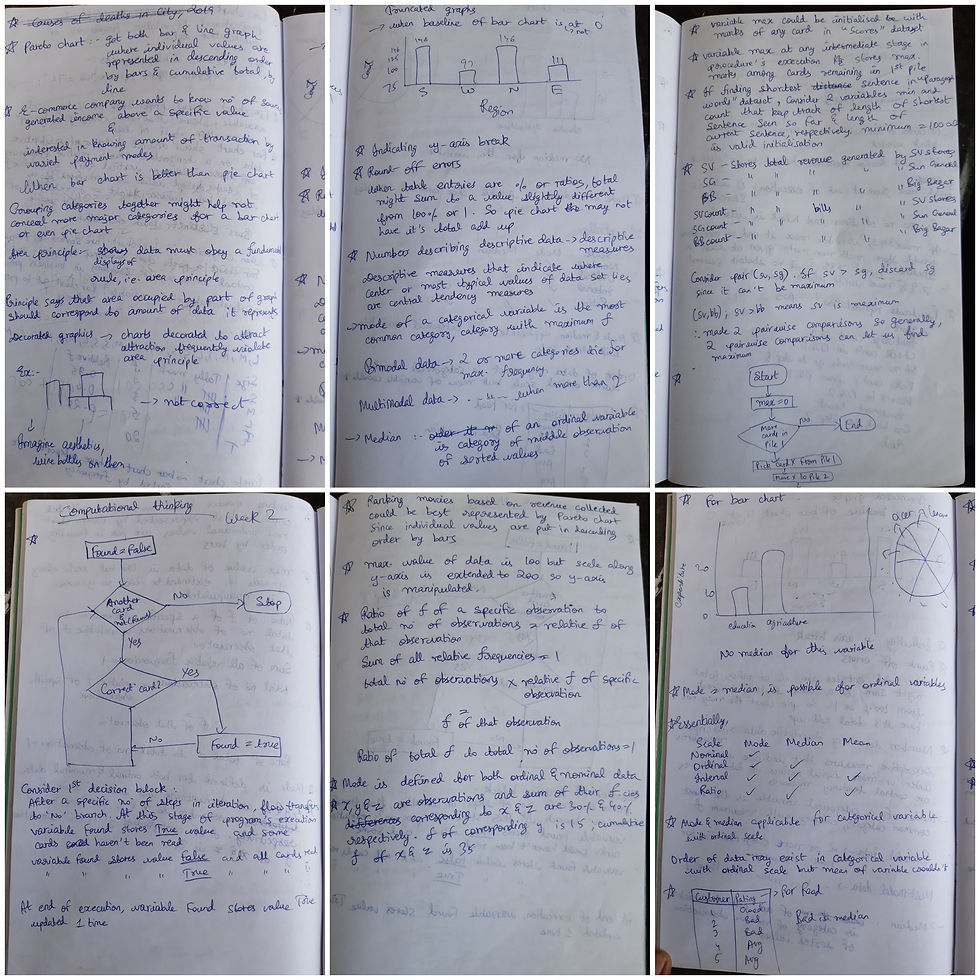 ☆ Causes of deaths in City, 2019
☆ Pareto chart :- got both bar & line graph
where individual values are
represented in descending order
by bars & cumulative total by
line
☆ E-commerce company wants to know no of
generated income above a specific value
&
interested in knowing amount of transaction by
varied payment modes
When bar chart is better than pie chart
Grouping categories together might help not
conceal more major categories for a bar chart
or even pie chart
Area principle - shows data must obey a fundamental
displays of
rule, i.e. area principle
Principle says that area occupied by part of graph
should correspond to amount of data it represents
Decorated graphics → charts decorated to attract
attraction frequently violate
area principle
Ex:-
→ not correct
Imagine aesthetics,
wine bottles on them
Truncated graphs
→ when baseline of bar chart is at 0
not
146
97
146
111
100
75
S W N E
Region
☆ Indicating y-axis break
☆ Round-off errors
When table entries are % or ratios, total
might sum to a value slightly different
from 100% or 1. So pie chart may not
have it's total add up
☆ Number describing descriptive data → descriptive
measures
Descriptive measures that indicate where
center or most typical values of data set lies
are central tendency measures
→ mode of a categorical variable is the most
common category, category with maximum f
Bimodal data → 2 or more categories tie for
max. frequency
MultiModal data → - " - when more than 2
→ Median :- of an ordinal variable
is category of middle observation
of sorted values
☆ variable max could be initialised be with
marks of any card in "Scores" dataset
☆ variable max at any intermediate stage in
procedure's execution stores max.
marks among cards remaining in 1st pile
☆ If finding shortest distance sentence in "Paragraph
words" dataset, Consider 2 variables min and
count that keep track of length of shortest
Sentence Seen so far & length of
current sentence, respectively. minimum = 100
is valid initialisation
☆ SV - Stores total revenue generated by SV stores
SG - " " " " " Sun General
BB " " " " " Big Bazar
SV count - " " bills " SV stores
SG count - " " " " Sun General
BB count - " " " " Big Bazar
Consider pair (sv, sg). If sv > sg, discard sg
since it can't be maximum
(sv, bb), sv > bb means sv is maximum
∴ made 2 pairwise comparisons so generally,
2 pairwise comparisons can let us find
maximum
☆
Start
max = 0
More
cards in
Pile 1
No
End
Pick card X from Pile 1
move X to Pile 2
Computational thinking
Week 2
☆
Found = False
Another
card
& not (Found)
No
Stop
Yes
Correct card?
Yes
No
Found = true
Consider 1st decision block :-
After a specific no of steps in iteration, flow transfer
to 'No' branch. At this stage of program's execution
variable Found stores True value and some
cards could haven't been read
variable found stores value False and all cards read
" " " " True " " " "
At end of execution, variable Found stores value True
updated 1 time
☆ Ranking movies based on revenue collected
could be best represented by Pareto chart
Since individual values are put in descending
order by bars
☆ max. value of data is 100 but scale along
y-axis is extended to 200 so y-axis
is manipulated
☆ Ratio of f of a specific observation to
total no of observations = relative f of
that observation
Sum of all relative frequencies = 1
total no of observations × relative f of specific
observation
=
f of that observation
Ratio of total f to total no of observations = 1
☆ Mode is defined for both ordinal & nominal data
☆ X, y & z are observations and sum of their f cies
differences corresponding to x & z are 30% & 40%
respectively. f of corresponding y is 15; cumulative
f of x & z is 35
☆ For bar chart
Expenditure
education agriculture
No median for this variable
☆ Mode = median, is possible for ordinal variables
☆ Essentially,
Scale Mode Median Mean
Nominal ✓
Ordinal ✓ ✓
Interval ✓ ✓ ✓
Ratio ✓ ✓ ✓
☆ Mode & median applicable for categorical variable
with ordinal scale
Order of data may exist in categorical variable
with ordinal scale but mean of variable wouldn't
☆
Customer Rating → for food
1 Good
2 Bad Bad is median
3 Bad
4 Avg
5 Avg